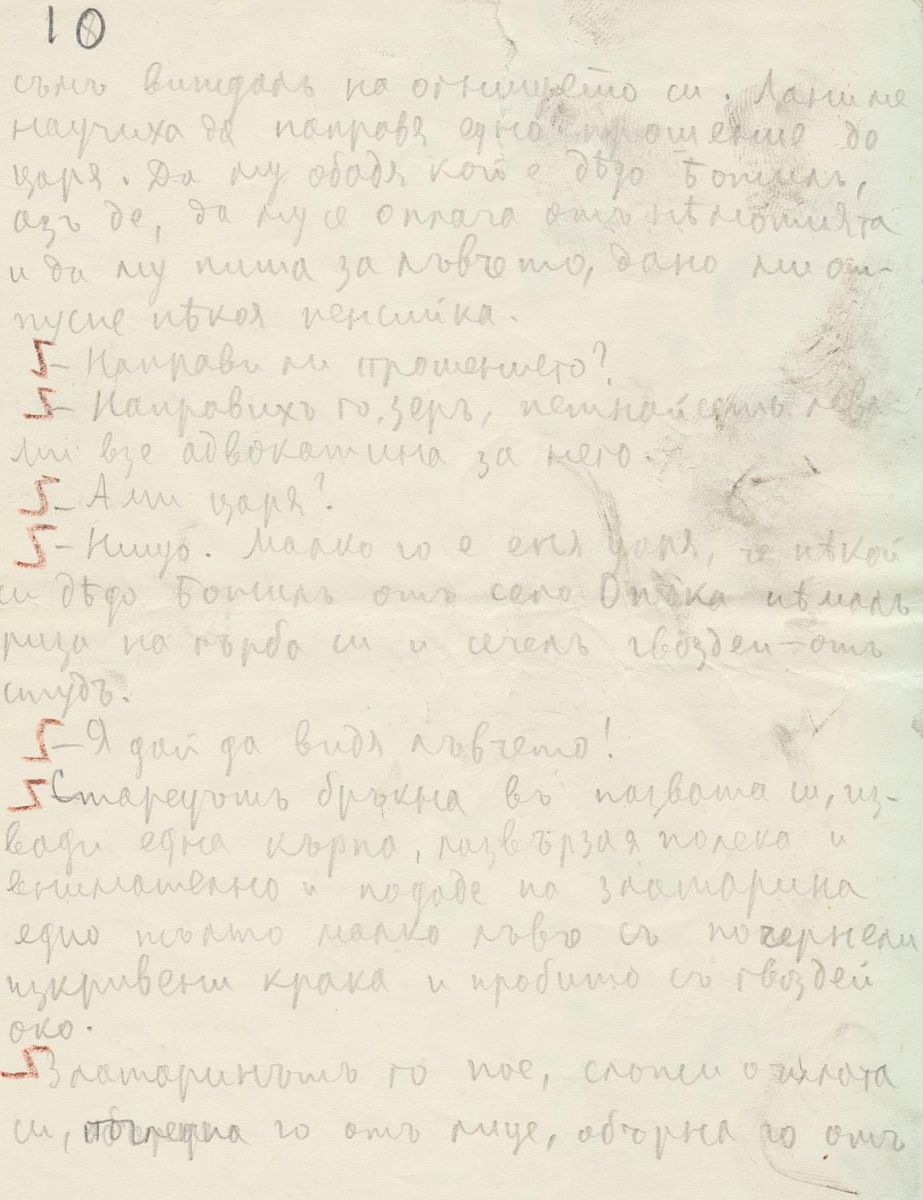 10
съмъ виждалъ на огнището си. Лани ме
научиха да направя едно прошение до
царя. Да му обадя кой е дѣдо Божилъ,
азъ де, да му се оплача отъ нѣмотията
и да му пиша за лъвчето, дано ми от-
пусне нѣкоя пенсийка.
– Направи ли прошението?
– Направихъ го, зеръ, петнайесть лева
ми взе адвокатина за него.
– Ами царя?
– Нищо. Малко го е еня царя, че нѣкой
си дѣдо Божилъ отъ село Опѣка нѣмалъ
риза на гърба си и сечелъ гвоздеи – отъ
студъ.
– Я дай да видя лъвчето!
Старецътъ бръкна въ пазвата си, из-
вади една кърпа, развърза я полека и
внимателно и подаде на златарина
едно жълто малко лъвче съ почернели
изкривени крака и пробито съ гвоздей
око.
Златаринътъ го пое, сложи очилата
си, погледна го отъ лице, обърна го отъ